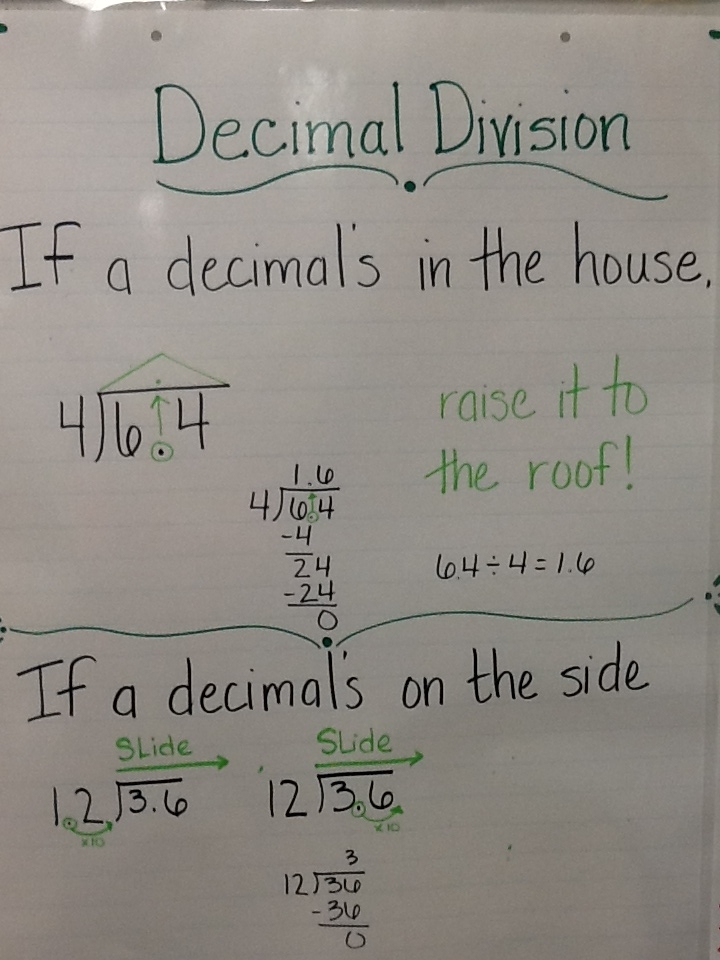 Decimal Division
If a decimal's in the house,
raise it to
the roof!
4)6.4
1.6
4)6.4
-4
24
-24
0
6.4÷4=1.6
If a decimal's on the side
Slide
Slide
1.2)3.6
x10
12)3.6
x10
3
12)36
-36
0